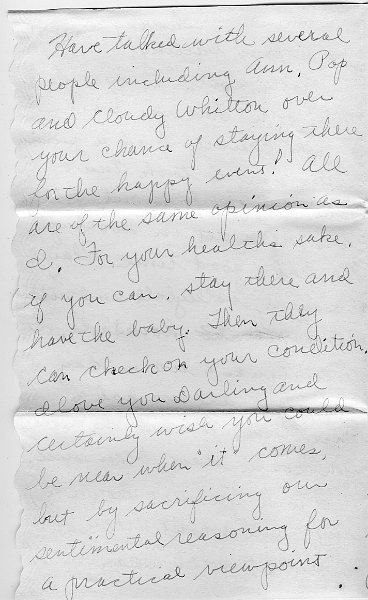 Have talked with several
people including Ann, Pop
and Cloudy Whitton over
your chance of staying there
for the happy event! All
are of the same opinion as
I. For your health's sake,
if you can, stay there and
have the baby. Then they
can check on your condition.
I love you Darling and
certainly wish you could
be near when "it" comes,
but by sacrificing our
sentimental reasoning for
a practical viewpoint